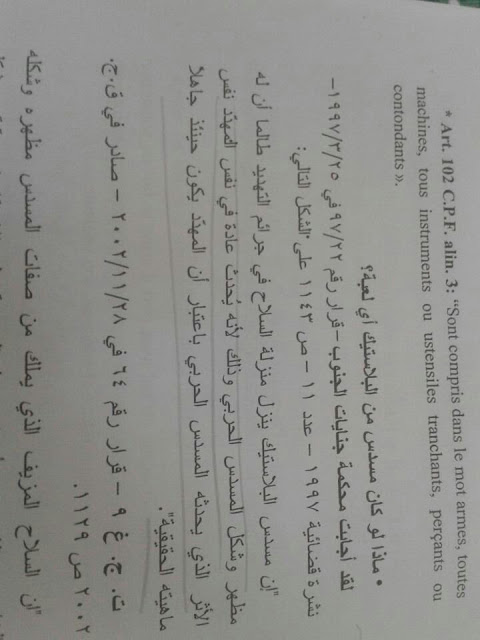 * Art. 102 C.P.F. alin. 3: “Sont compris dans le mot armes, toutes
machines, tous instruments ou ustensiles tranchants, perçants ou
contondants ».
• ماذا لو كان مسدس من البلاستيك أي لعبة؟
لقد أجابت محكمة جنايات الجنوب – قرار رقم ٩٧/٢٢ في ١٩٩٧/٣/٢٥ –
نشرة قضائية ١٩٩٧ – عدد ١١ – ص ١١٤٣ على الشكل التالي:
"إن مسدس البلاستيك ينزل منزلة السلاح في جرائم التهديد طالما أن له
مظهر وشكل المسدس الحربي وذلك لأنه يُحدث عادة في نفس المهدَّد نفس
الأثر الذي يحدثه المسدس الحربي باعتبار أن المهدَّد يكون حينئذ جاهلاً
ماهيته الحقيقية".
ت. ج. غ ٩ – قرار رقم ٦٤ في ٢٠٠٢/١١/٢٨ – صادر في ق.ج.
٢٠٠٢ ص ١١٢٩.
"إن السلاح المزيف الذي يملك من صفات المسدس مظهره وشكله